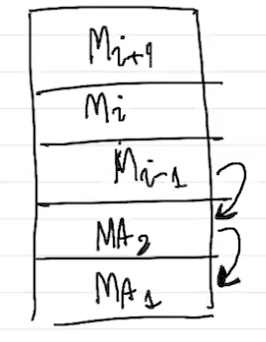 Mi+1
Mi
Mi-1
MA2
MA1